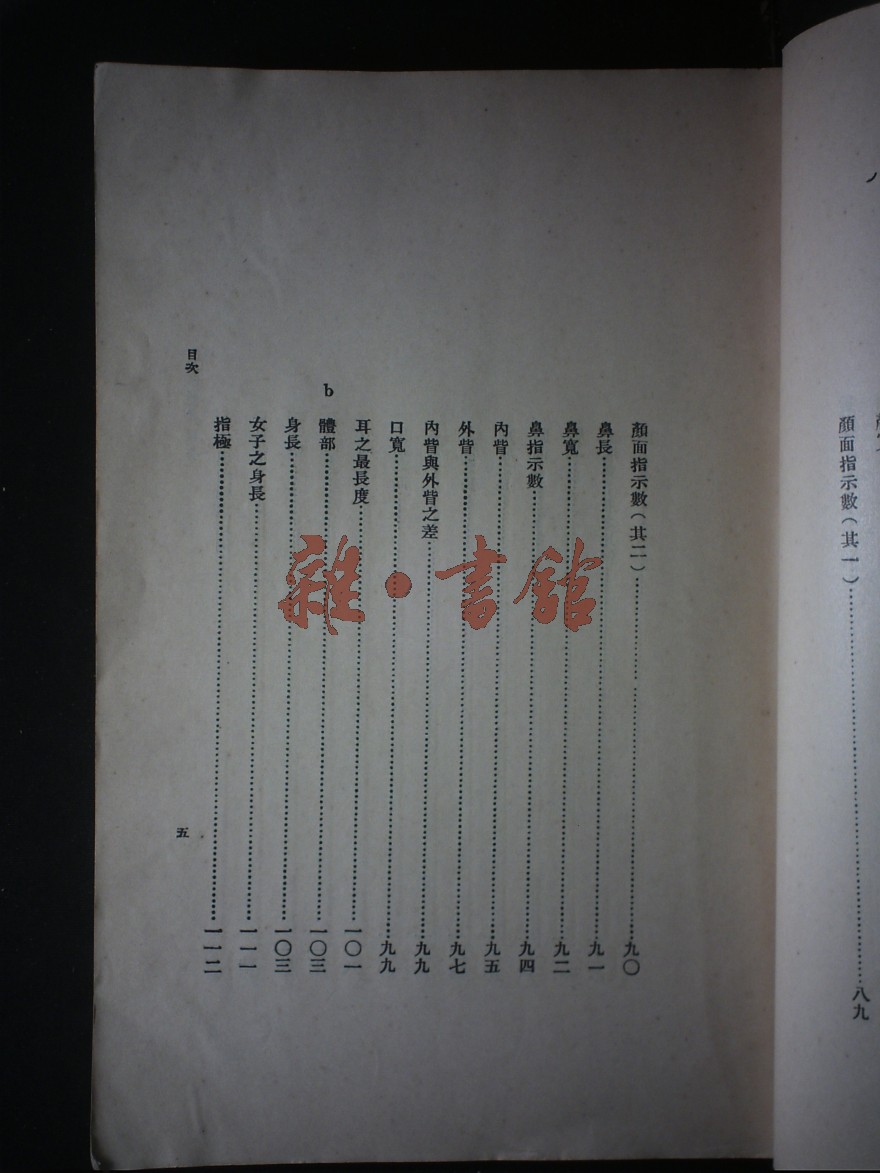 顏面指示數（其一）……………………八九
顏面指示數（其二）……………………九〇
鼻長……………………九一
鼻寬……………………九二
鼻指示數……………………九四
內眥……………………九五
外眥……………………九七
內眥與外眥之差……………………九九
口寬……………………九九
耳之最長度……………………一〇一
b 體部……………………一〇三
身長……………………一〇三
女子之身長……………………一一一
指極……………………一一二
目次
五
雜·書館